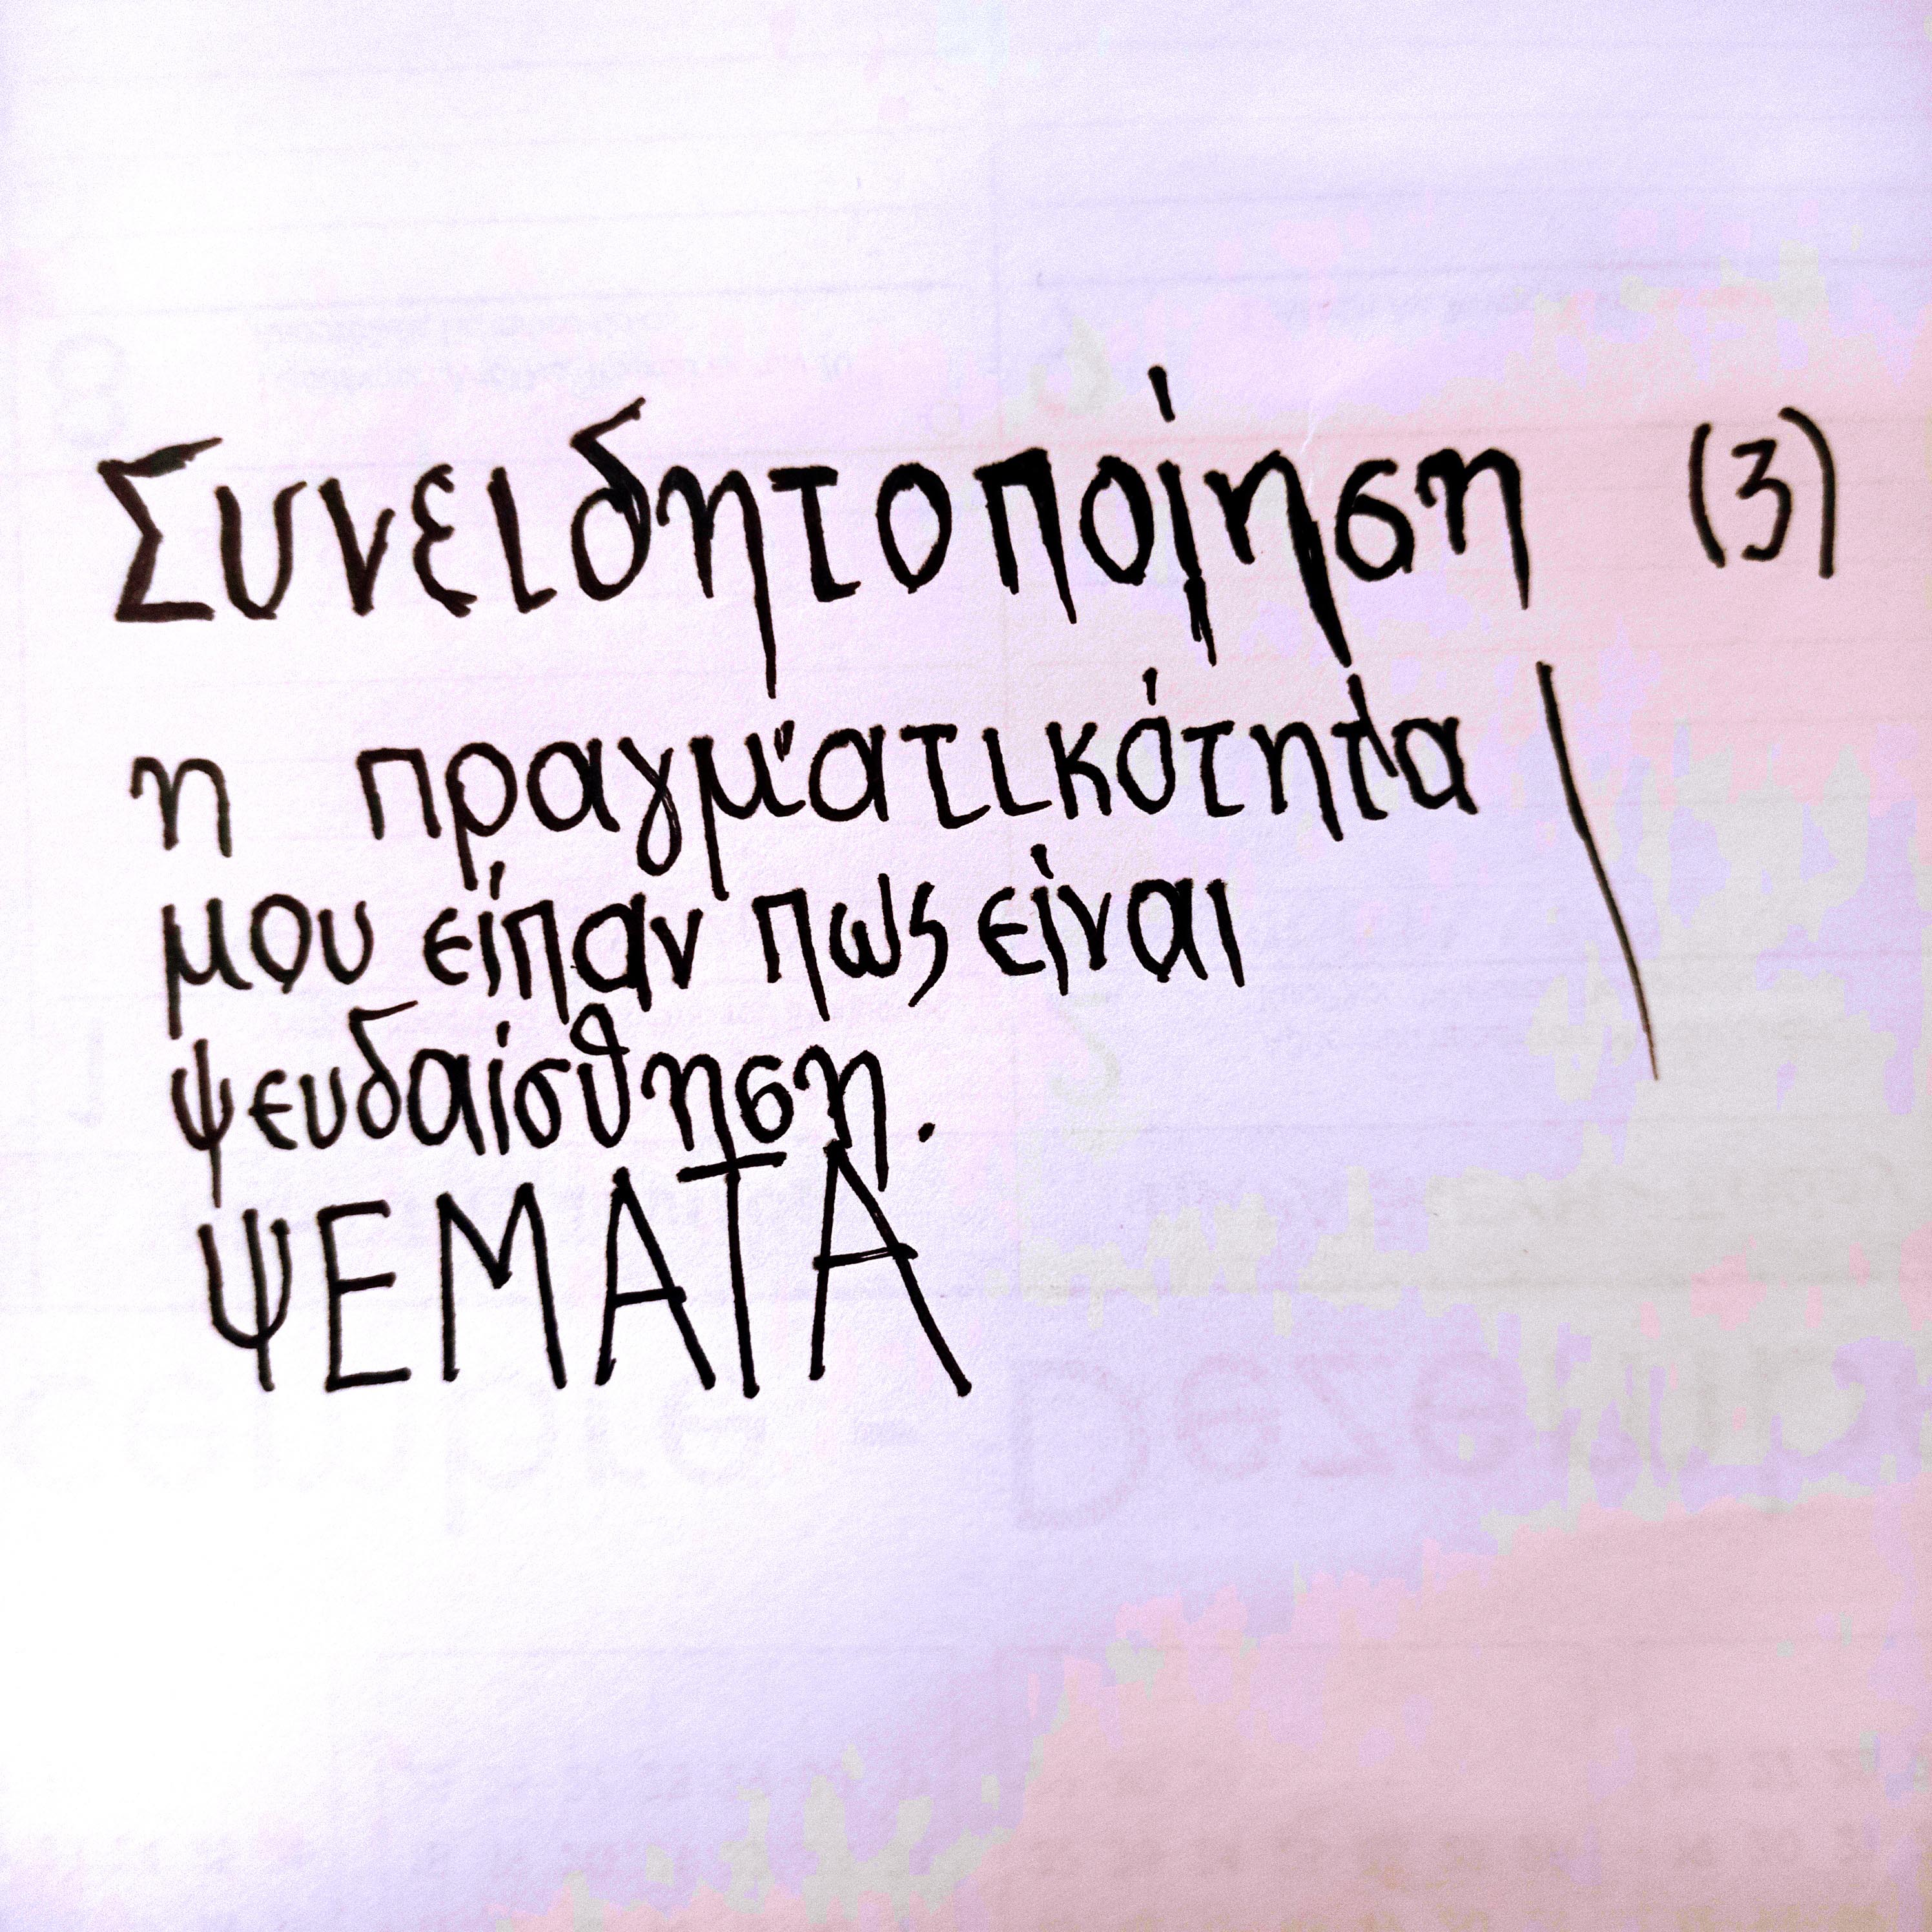 Συνειδητοποίηση (3)
η πραγματικότητα
μου είπαν πως είναι
ψευδαίσθηση.
ΨΕΜΑΤΑ